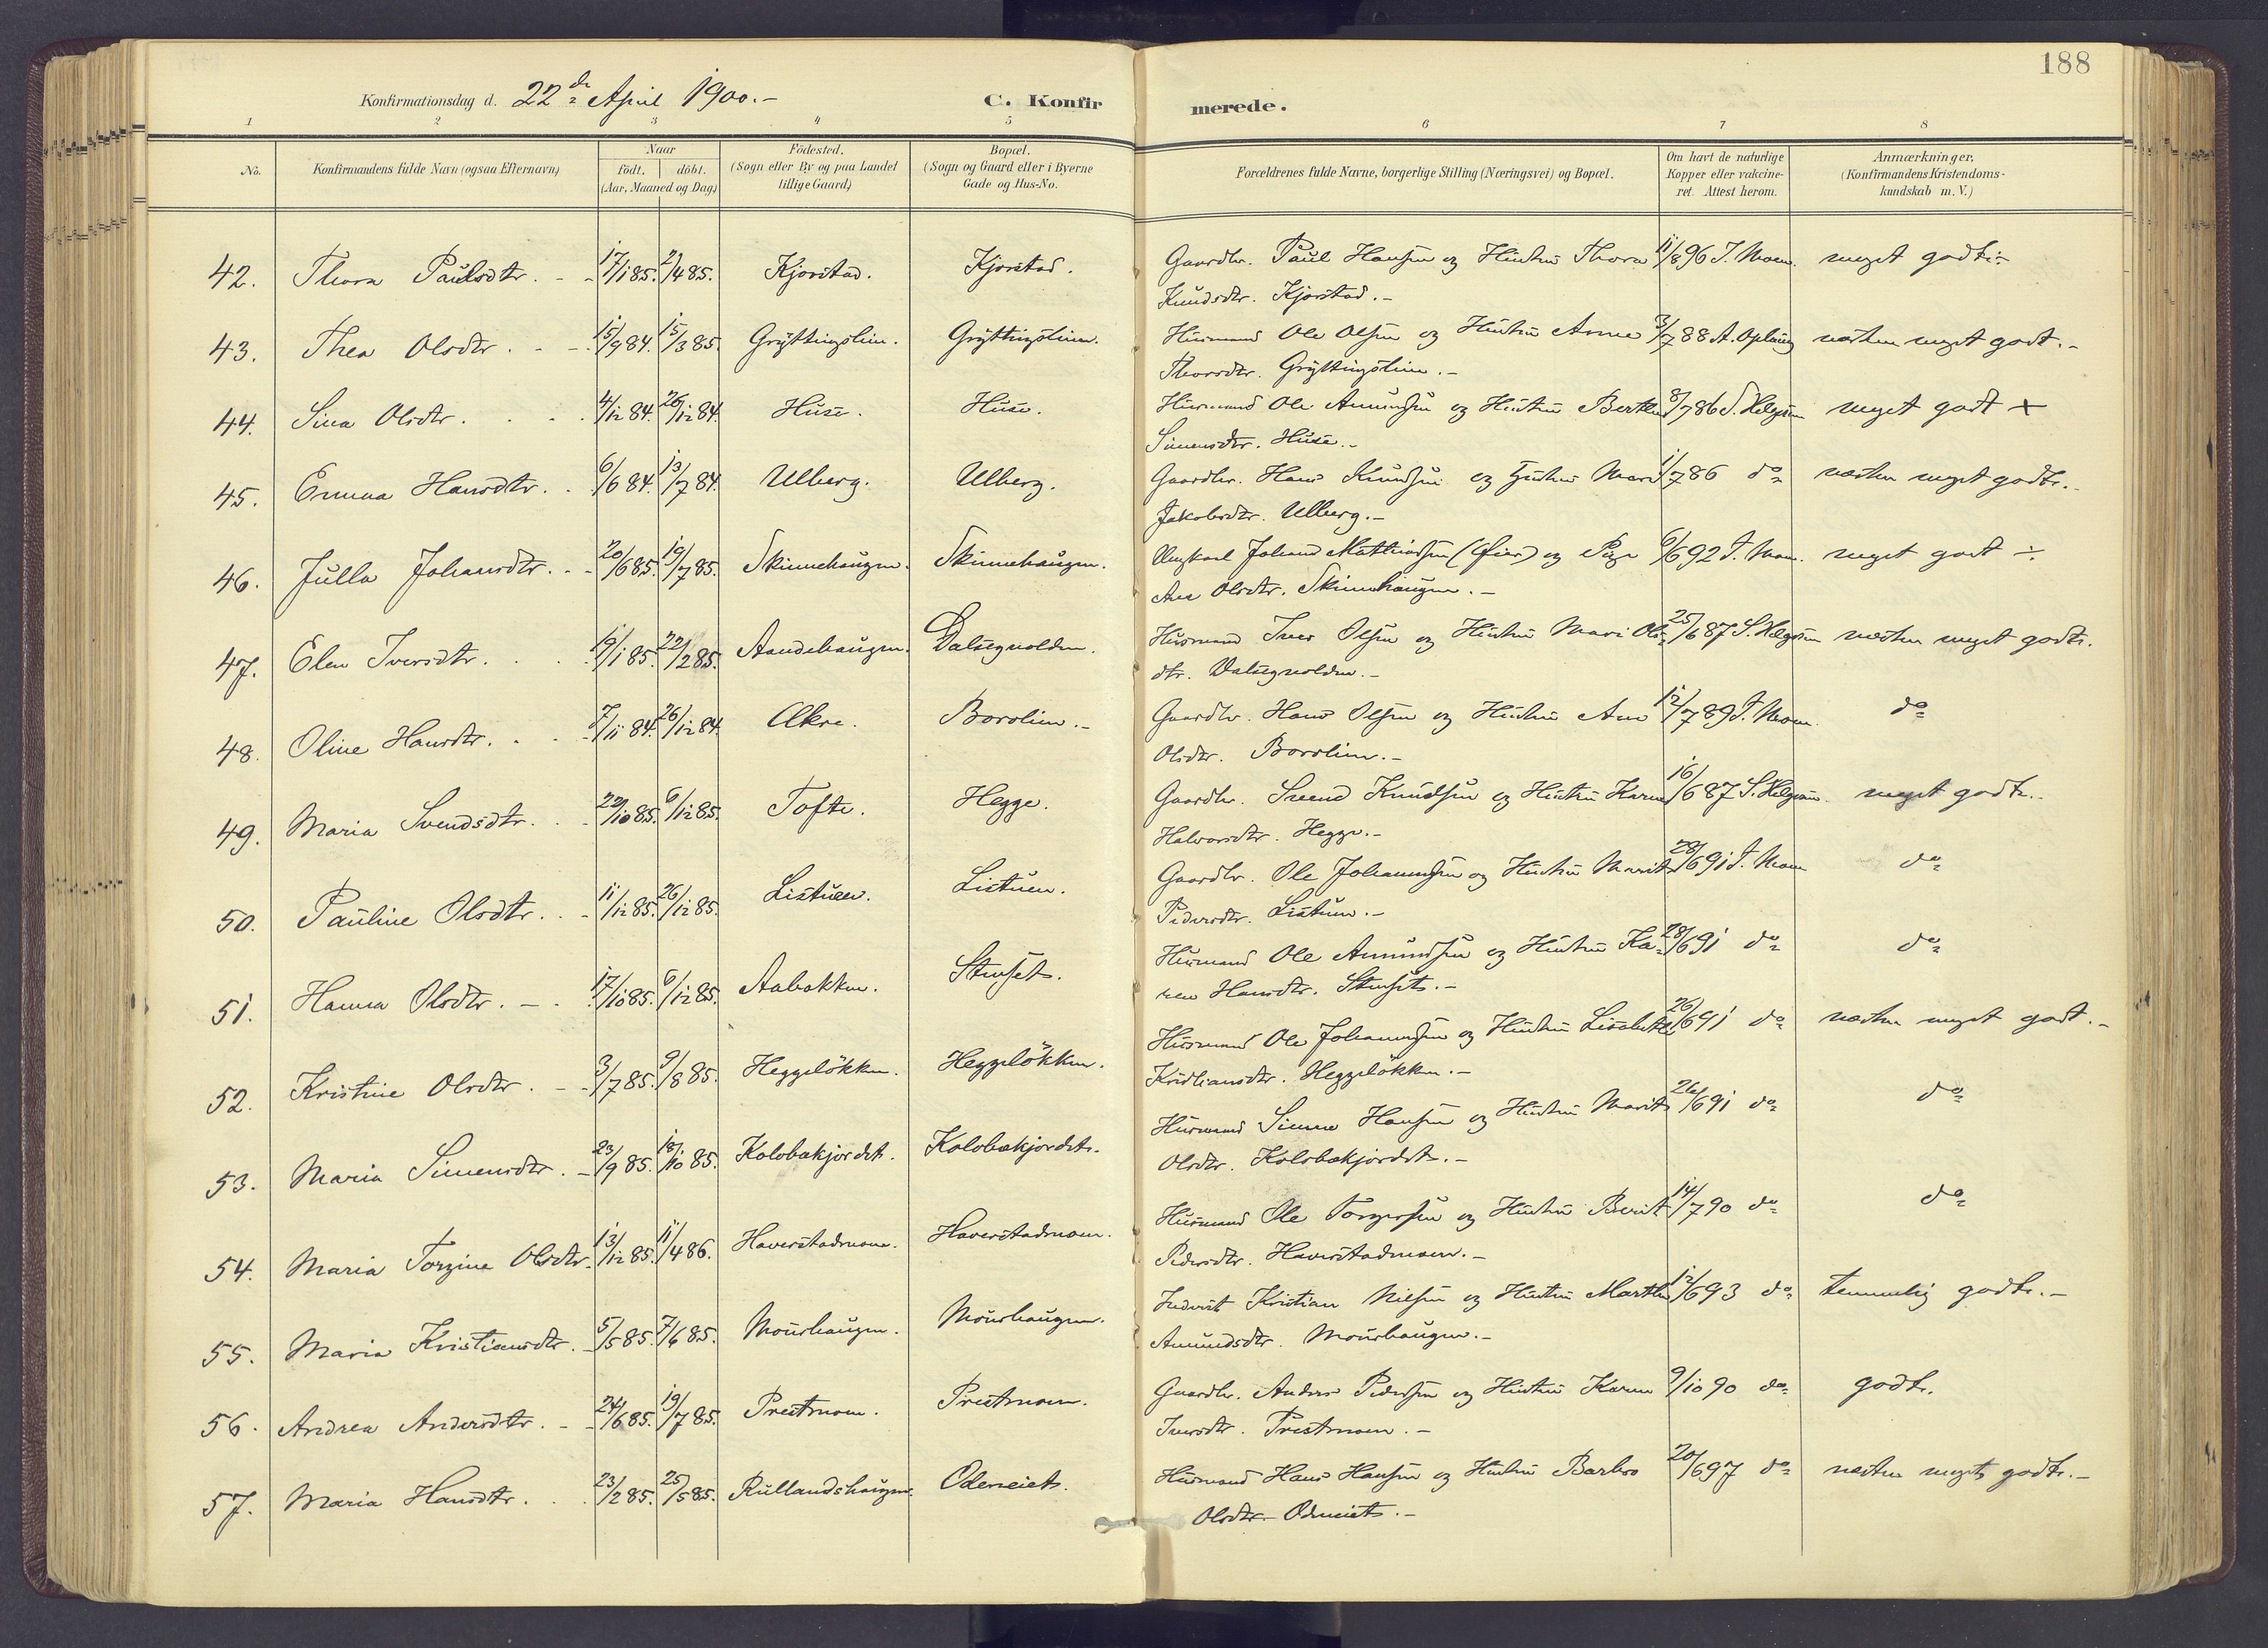 188
Konfirmationsdag d. 22de April 1900.-
C. Konfirmerede.
1 2 3 4 5 6 7 8
No.
Konfirmandens fulde Navn (ogsaa Efternavn)
Naar
födt. döbt.
(Aar, Maaned og Dag)
Födested.
(Sogn eller By og paa Landet
tillige Gaard)
Bopæl.
(Sogn og Gaard eller i Byerne
Gade og Hus-No.
Forældrenes fulde Navne, borgerlige Stilling (Næringsvei) og Bopæl.
Om havt de naturlige
Kopper eller vakcine-
ret. Attest herom.
Anmærkninger.
(Konfirmandens Kristendoms-
kundskab m. V.)
42. Thora Paulsdtr. 17/1 85. 2/4 85. Kjorstad. Kjorstad. Gaardbr. Paul Hansen og Hustru Thora 11/8 96 T. Moen. meget godt.-
Knudsdtr. Kjorstad.-
43. Thea Olsdtr. 15/9 84. 15/3 85. Gryttingslien. Gryttingslien. Husmand Ole Olsen og Hustru Anne 3/7 88 A. Oplöug næsten meget godt.-
Thorsdtr. Gryttingslien.-
44. Sina Olsdtr. 4/12 84. 26/12 84. Huse. Huse. Husmand Ole Amundsen og Hustru Berthe 8/7 86 S. Helgesen meget godt +
Simensdtr. Huse.-
45. Emma Hansdtr. 6/6 84. 13/7 84. Ulberg. Ulberg. Gaardbr. Hans Knudsen og Hustru Mari 1/7 86 do næsten meget godt.-
Jakobsdtr. Ulberg.-
46. Julla Johansdtr. 20/6 85. 19/7 85. Skinnehaugen. Skinnehaugen. Ungkarl Johans Mathiassen (Öier) og Pige 6/6 92 T. Moen. meget godt ÷
Ane Olsdtr. Skinnehaugen.-
47. Elen Iversdtr. 19/1 85. 22/2 85. Aandehaugen. Dalsegvolden. Husmand Iver Olsen og Hustru Mari Ols- 25/6 87 S. Helgesen næsten meget godt.
dtr. Dalsegvolden.-
48. Oline Hansdtr. 7/11 84. 26/12 84. Ekre. Borolien.- Gaardbr. Hans Olsen og Hustru Ane 12/7 89 T. Moen. do
Olsdtr. Borolien.-
49. Maria Svendsdtr. 22/10 85. 6/12 85. Tofte. Hegge. Gaardbr. Svend Knudsen og Hustru Karen 16/6 87 S. Helgesen. meget godt.-
Halvorsdtr. Hegge.-
50. Pauline Olsdtr. 11/12 85. 26/12 85. Listuen. Listuen. Gaardbr. Ole Johannesen og Hustru Marit 28/6 91 T. Moen do
Pedersdtr. Listuen.-
51. Hanna Olsdtr. 17/10 85. 6/12 85. Aabakken. Stenset. Husmand Ole Amundsen og Hustru Ka- 28/6 91 do do
ren Hansdtr. Stenset.-
52. Kristine Olsdtr. 3/7 85. 9/8 85. Heggelökken. Heggelökken. Husmand Ole Johannesen og Hustru Lisabet 26/6 91 do næsten meget godt.-
Kristiansdtr. Heggelökken.-
53. Maria Simensdtr. 23/9 85. 18/10 85. Kolobakjordet. Kolobakjordet. Husmand Simen Hansen og Hustru Marit 26/6 91 do do
Olsdtr. Kolobakjordet.-
54. Maria Torgine Olsdtr. 13/12 85. 11/4 86. Haverstadmoen. Haverstadmoen. Husmand Ole Torgersen og Hustru Berit 14/7 90 do do
Pedersdtr. Haverstadmoen.-
55. Maria Kristiansdtr. 5/5 85. 7/6 85. Mourhaugen. Mourhaugen. Inderst Kristian Nilsen og Hustru Marthe 12/6 93 do temmelig godt.-
Amundsdtr. Mourhaugen.-
56. Andrea Andersdtr. 24/6 85. 19/7 85. Prestmoen. Prestmoen. Gaardbr. Anders Pedersen og Hustru Karen 9/10 90 do godt.
Iversdtr. Prestmoen.-
57. Maria Hansdtr. 23/2 85. 25/5 85. Rullandshaugen. Odeneiet. Husmand Hans Hansen og Hustru Barbro 20/6 97 do næsten meget godt.-
Olsdtr.- Odeneiet.-